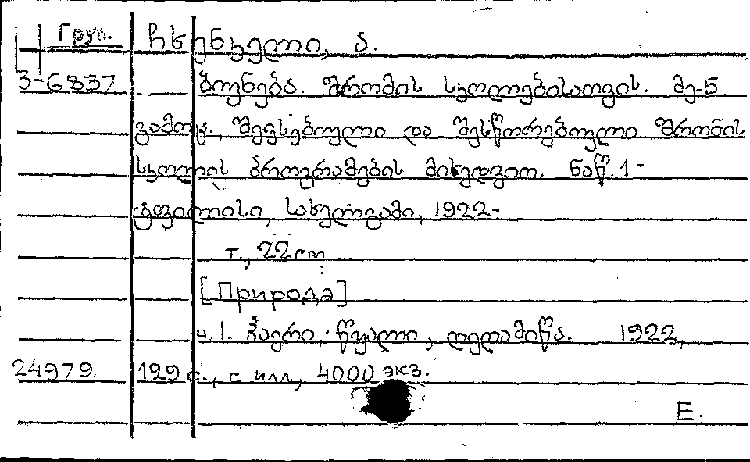 Груп. ჩხენკელი, ა.
3-6837 ბუნება. შრომის სკოლებისათვის. მე-5
გამოც., შევსებული და შესწორებული შრომის
სკოლის პროგრამების მიხედვით. ნაწ. 1-
ტფილისი, სახელგამი, 1922-
т., 22 см
[Природа]
ч. 1. ჰაერი, წყალი, დედამიწა. 1922,
24979 129 с., с илл, 4000 экз.
Е.